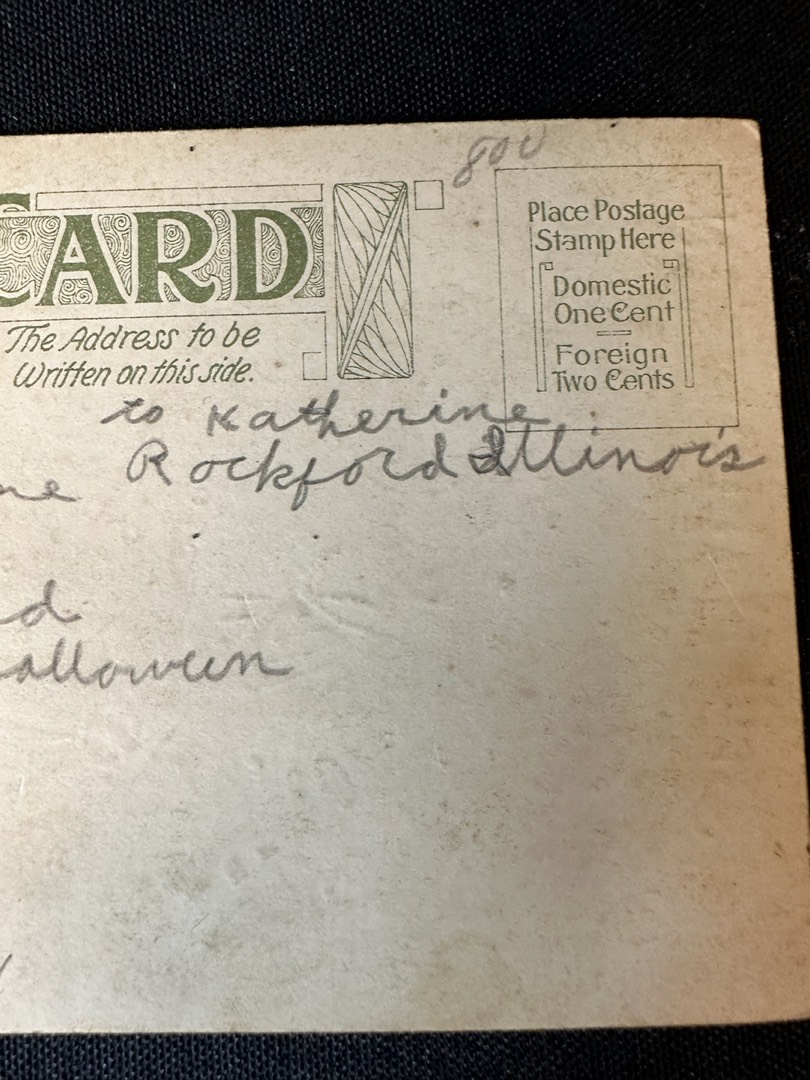 800
CARD
Place Postage
Stamp Here
Domestic
One Cent
Foreign
Two Cents
The Address to be
Written on this side.
to Katherine
Rockford Illinois
ne
d
alloween